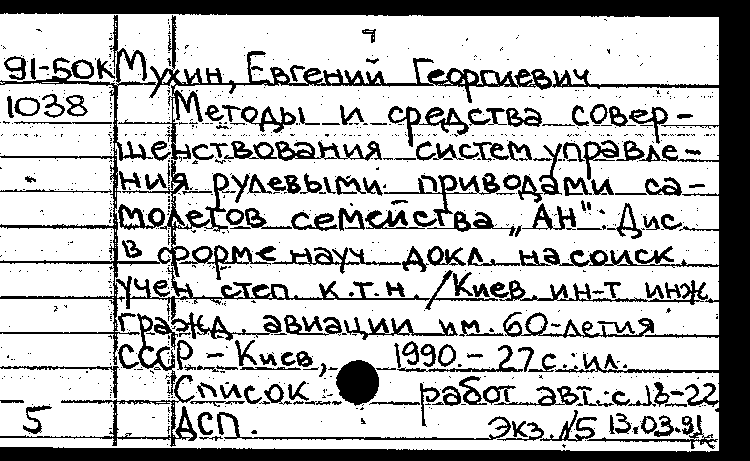 91-50К Мухин, Евгений Георгиевич
1038 Методы и средства совер-
шенствования систем управле-
ния рулевыми приводами са-
молетов семейства „АН": Дис.
в форме науч. докл. на соиск.
учен степ. к.т.н. / Киев. ин-т инж.
гражд. авиации им. 60-летия
СССР. - Киев, 1990. - 27 с.: ил.
Список работ авт.: с. 18-22
5 ДСП. Экз. №5 13.03.91